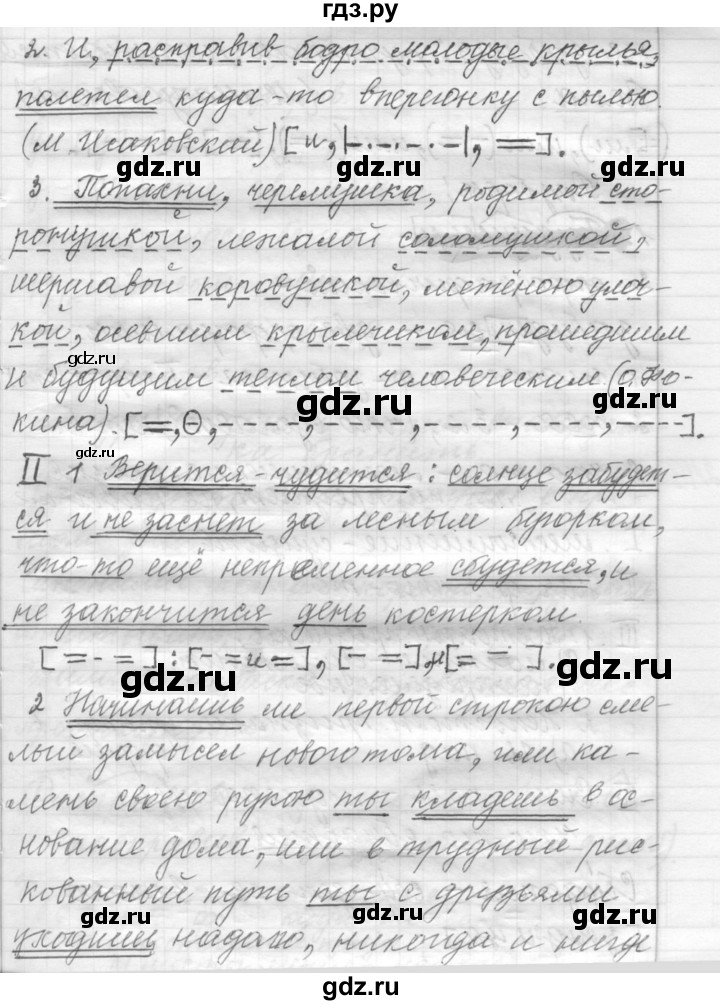 гдз.ру
2. И, расправив бодро молодые крылья,
полетел куда-то вперегонку с пылью.
(М. Исаковский) [и, |-.-.-.-|, ==].
gdz.ru gdz.ru
3. Попахни, черемушка, родимой сто-
gdz.ru
ронушкой, лежалой соломушкой,
шершавой коровушкой, метёною улоч-
кой, осевшим крылечиком, прошедшим
gdz.ru
и будущим теплом человеческим (О. Фо-
gdz.ru gdz.ru
кина). [=, Ө, ----, ----, ----, ----, ----].
II 1 Верится-чудится: солнце забудет-
gdz.ru
ся и не заснет за лесным бугорком,
что-то ещё непременное сбудется, и
не закончится день костерком.
[= - =] : [- = и =], [- =], и [= -].
gdz.ru gdz.ru
2 Начинаешь ли первой строкою сме-
лый замысел нового тома, или ка-
gdz.ru
мень своею рукою ты кладешь в ос-
нование дома, или в трудный рис-
gdz.ru
кованный путь ты с друзьями
gdz.ru gdz.ru
уходишь надолго, никогда и нигде
gdz.ru